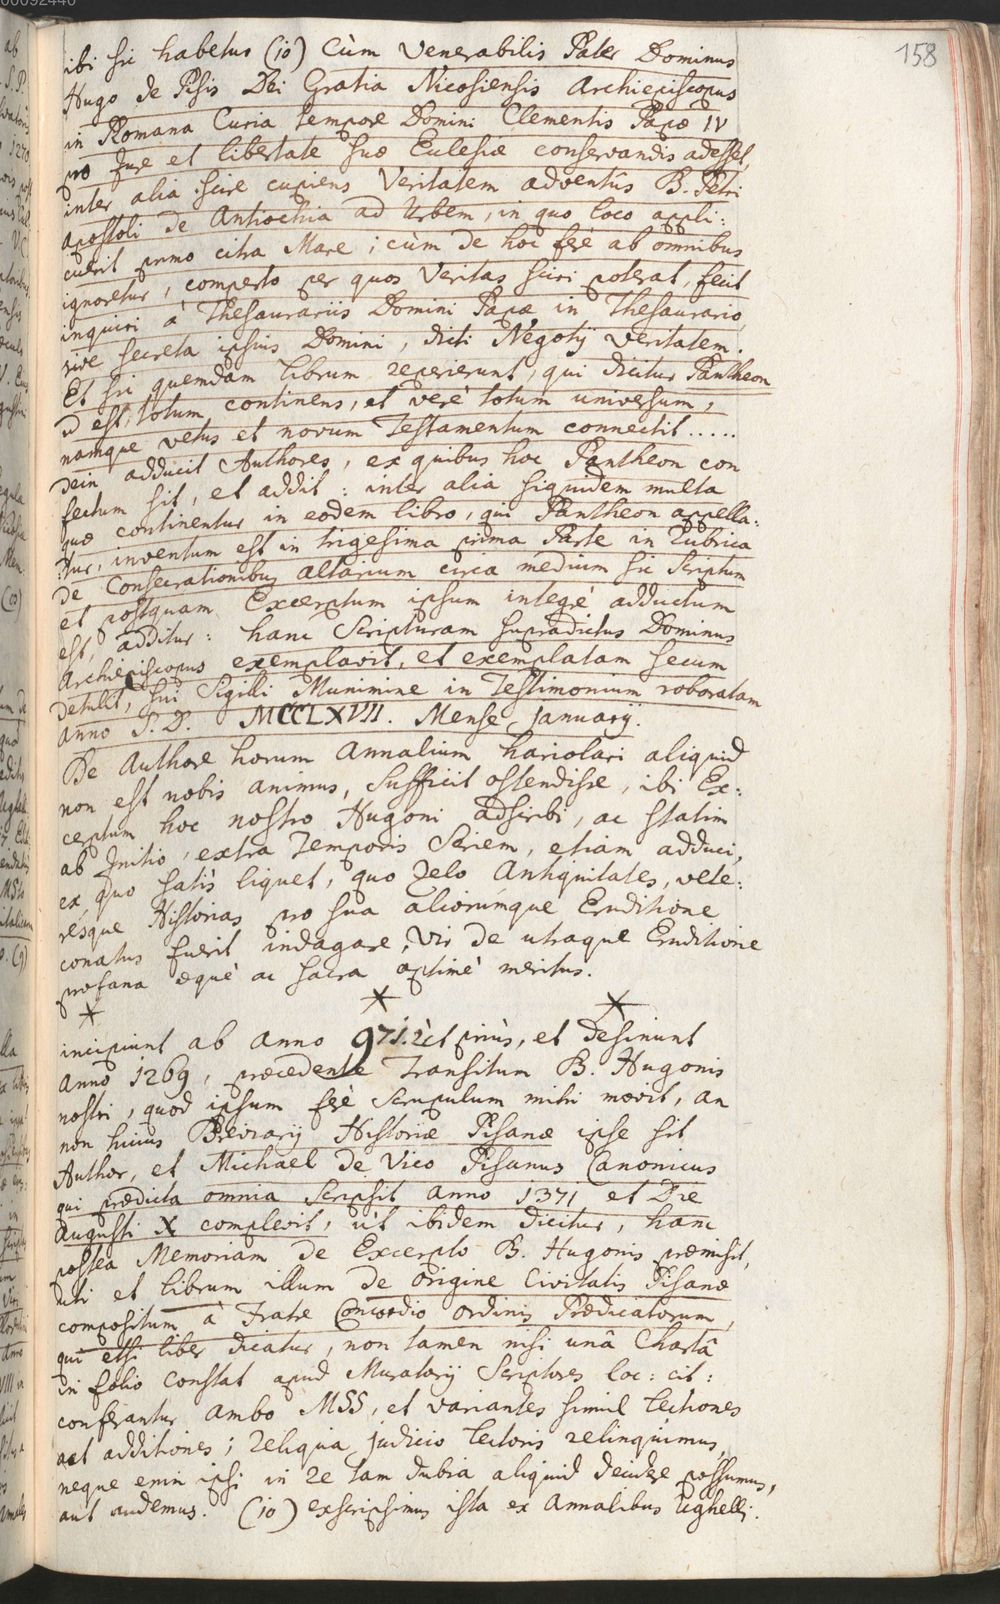 158
ibi sic habetur (10) Cùm Venerabilis Pater Dominus
Hugo de Pisis Dei Gratia Nicosiensis Archiepiscopus
in Romana Curia tempore Domini Clementis Papæ IV
pro Jure et libertate suæ Eclesiæ conservandis adesset,
inter alia scire cupiens Veritatem adventûs B. Petri
Apostoli de Antiochia ad Urbem, in quo loco appli:
cuerit primo citra Mare; cùm de hoc ferè ab omnibus
ignoretur, comperto per quos Veritas sciri poterat, fecit
inquiri à Thesaurariis Domini Papæ in Thesaurario,
sive secreta ipsius Domini, dicti Negotij veritatem.
Et sic quemdam librum repererunt, qui dicitur Pantheon
id est, totum continens, et verè totum universum,
namque vetus et novum Testamentum connectit.....
dein adducit Authores, ex quibus hoc Pantheon con
fectum sit, et addit: inter alia siquidem multa
quæ continentur in eodem libro, qui Pantheon appella:
tur, inventum est in trigesima prima Parte in Rubrica
de Consecrationibus altarium circa medium sic Scriptum
et postquam Excerptum ipsum integrè adductum
est, additur: hanc Scripturam supradictus Dominus
Archiepiscopus exemplavit, et exemplatam secum
detulit, sui Sigilli Munimine in Testimonium roboratam
anno S. D. MCCLXVII. Mense Januarij.
De Authore horum Annalium hariolari aliquid
non est nobis animus, Sufficit ostendisse, ibi Ex:
cerptum hoc nostro Hugoni adscribi, ac statim
ab Initio, extra Temporis Seriem, etiam adduci,
ex quo satis liquet, quo zelo Antiquitates, vete:
résque Historias pro sua aliorúmque Eruditione
conatus fuerit indagare, Vir de utraque Eruditione
profana æquè ac sacra optimè meritus.
* * *
incipiunt ab anno 971. ùt priùs, et desinunt
Anno 1269, præcedente Transitum B. Hugonis
nostri, quod ipsum ferè Scrupulum mihi movit, an
non huius Breviarij Historiæ Pisanæ ipse sit
Author, et Michael de Vico Pisanus Canonicus
qui prædicta omnia Scripsit anno 1371 et Die
Augusti X complevit, ùt ibidem dicitur, hanc
postea Memoriam de Excerpto B. Hugonis præmisit,
uti et librum illum de origine Civitatis Pisanæ
compositum à Fratre Concordio ordinis Prædicatorum,
qui etsi liber dicatur, non tamen nisi unâ Chartâ
in folio Constat apud Muratorij Scriptores loc: cit:
conferantur ambo MSS, et variantes simul lectiones
aut additiones; reliqua judicio lectoris relinquimus,
neque enim ipsi in re tam dubia aliquid decidere possumus,
aut audemus. (10) exscripsimus ista ex Annalibus Ughelli.